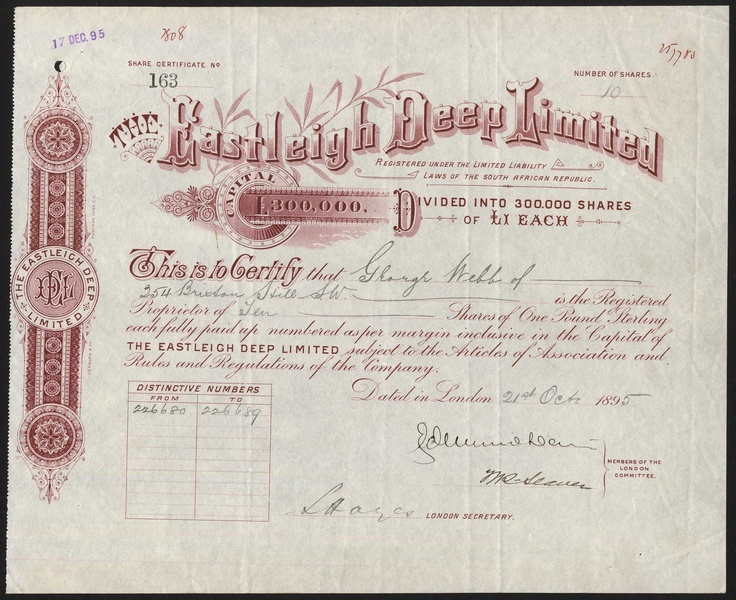 17 DEC. 95
SHARE CERTIFICATE No
163
NUMBER OF SHARES.
10
THE
Eastleigh Deep Limited
REGISTERED UNDER THE LIMITED LIABILITY
LAWS OF THE SOUTH AFRICAN REPUBLIC.
CAPITAL
£300,000,
DIVIDED INTO 300.000 SHARES
OF £1 EACH
This is to Certify that George Webb of
254 Brixton Hill SW is the Registered
Proprietor of Ten Shares of One Pound Sterling
each fully paid up numbered as per margin inclusive in the Capital of
THE EASTLEIGH DEEP LIMITED subject to the Articles of Association and
Rules and Regulations of the Company.
Dated in London 21st Oct 1895
DISTINCTIVE NUMBERS
FROM TO
226680 226689
MEMBERS OF THE
LONDON
COMMITTEE.
LONDON SECRETARY.
THE EASTLEIGH DEEP
LIMITED